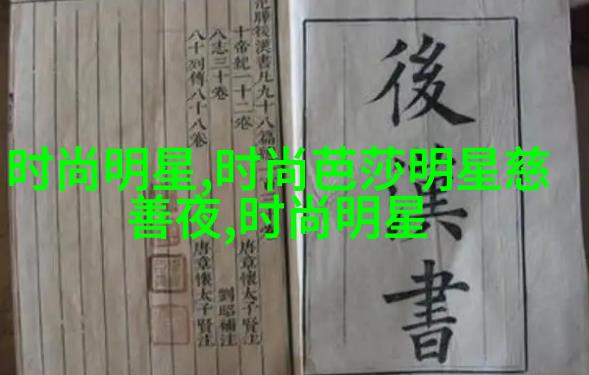 時尚明星,时尚芭莎明星慈
善夜,时尚明星
後漢書
曄後漢書凡九十八篇
十帝紀一十二卷
唐章懷太子賢注
八志三十卷
劉昭補注
八十列傳八十八卷
唐章懷太子賢注